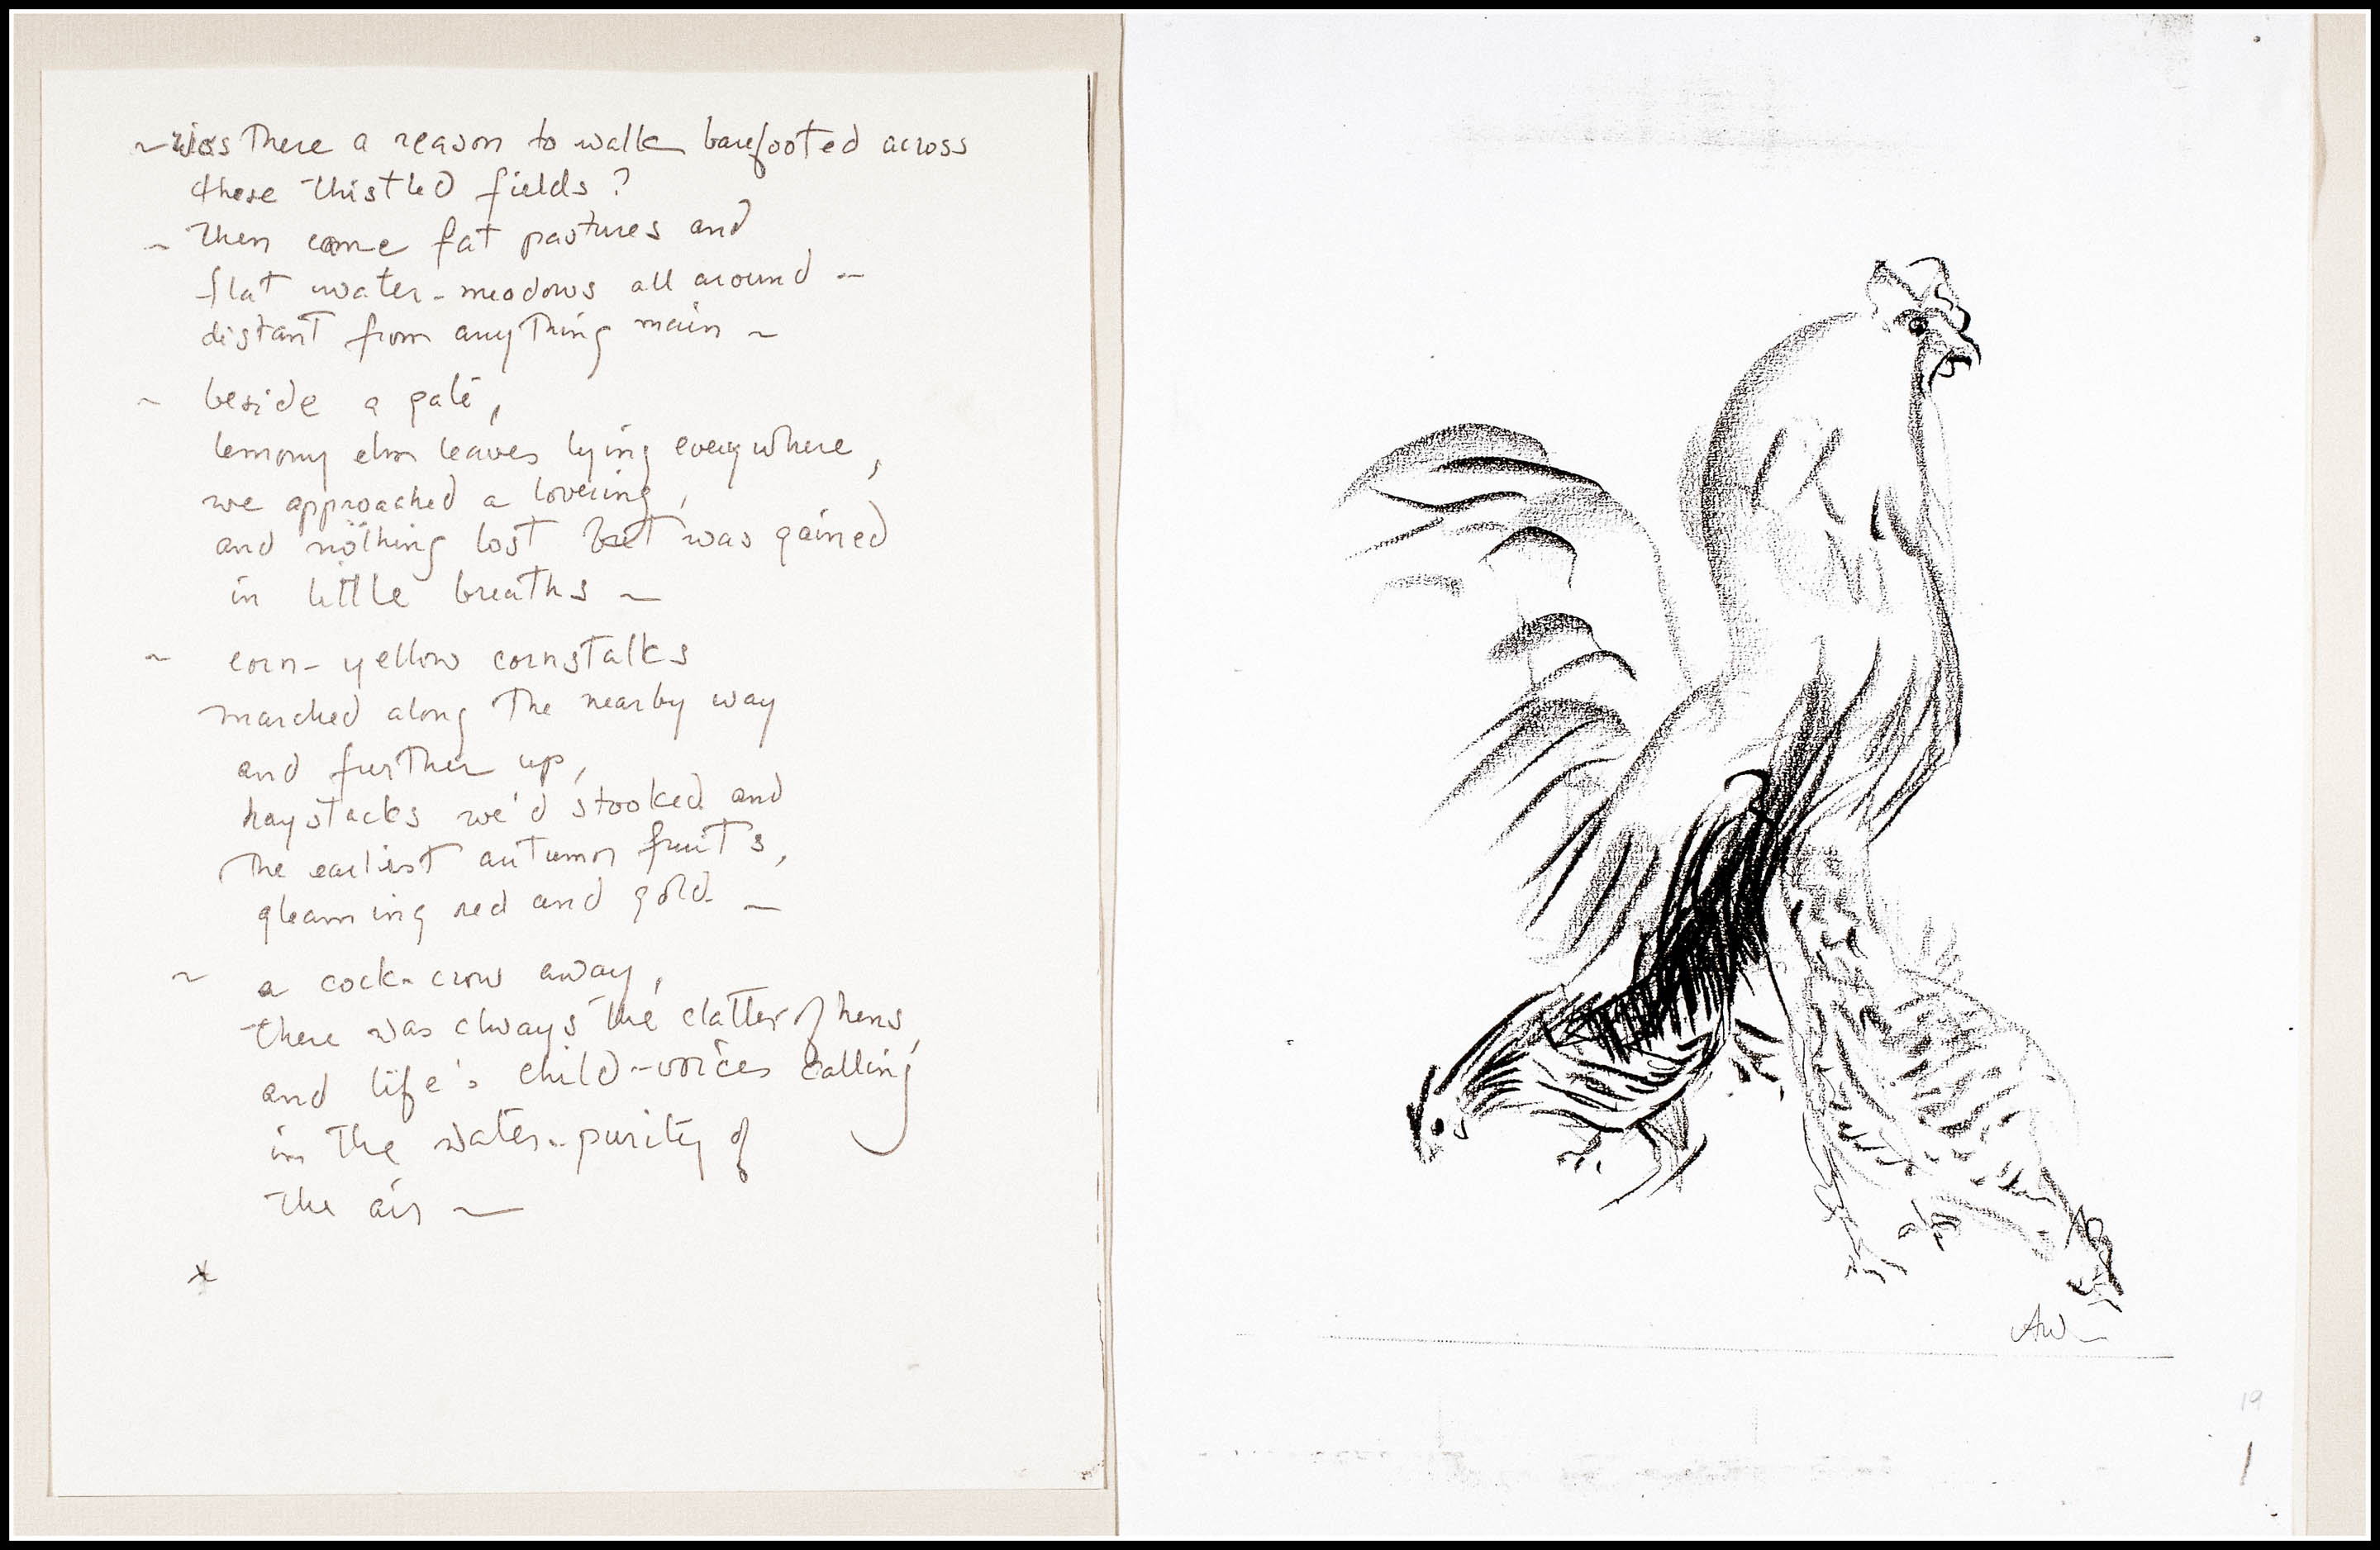 ~ was there a reason to walk barefooted across
these thistled fields?
~ Then came fat pastures and
flat water-meadows all around ~
distant from anything main ~
~ beside a gate,
lemony elm leaves lying everywhere,
we approached a lovering,
and nothing lost but was gained
in little breaths ~
~ corn-yellow cornstalks
marched along the nearby way
and further up,
haystacks we'd stooked and
the earliest autumn fruits,
gleaming red and gold ~
~ a cock-crow away,
there was always the clatter of hens,
and life's child-voices calling
in the water-purity of
the air ~
*
AW
19
1